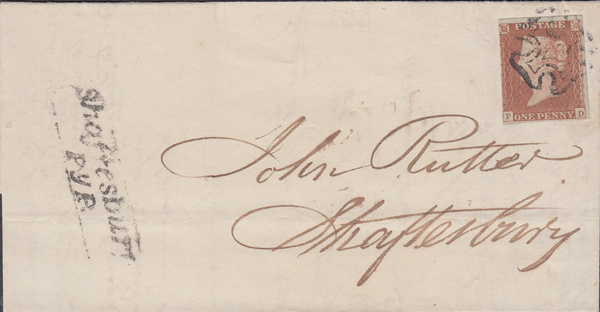 POSTAGE
ONE PENNY
F D
John Rutter
Shaftesbury
Shaftesbury
PyP